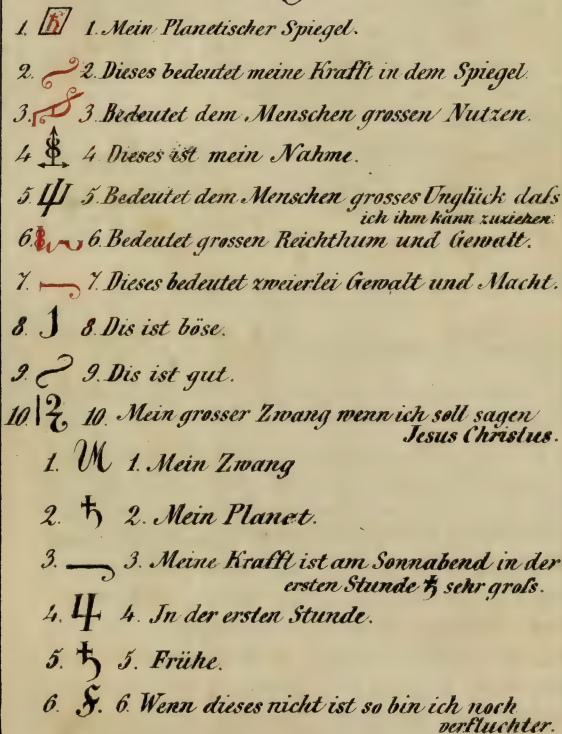 1. ♄ 1. Mein Planetischer Spiegel.
2. 2. Dieses bedeutet meine Krafft in dem Spiegel.
3. 3. Bedeutet dem Menschen grossen Nutzen.
4 4. Dieses ist mein Nahme.
5. 5. Bedeutet dem Menschen grosses Unglück daſs
ich ihm kann zuziehen.
6. 6. Bedeutet grossen Reichthum und Gewalt.
7. 7. Dieses bedeutet zweierlei Gewalt und Macht.
8. 8. Dis ist böse.
9. 9. Dis ist gut.
10. 10. Mein grosser Zwang wenn ich soll sagen
Jesus Christus.
1. 1. Mein Zwang
2. ♄ 2. Mein Planet.
3. 3. Meine Krafft ist am Sonnabend in der
ersten Stunde ♄ sehr groſs.
4. ♃ 4. In der ersten Stunde.
5. ♄ 5. Frühe.
6. 6. Wenn dieses nicht ist so bin ich noch
verfluchter.